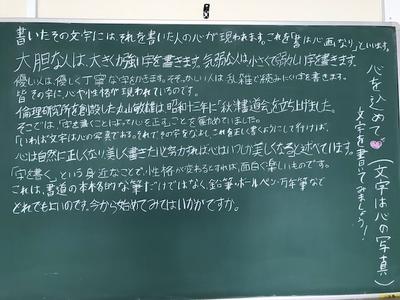 心を込めて(文字は心の写真)
文字を書いてみましょう!
書いたその文字には、それを書いた人の心が現われます。これを「書は心画なり」といいます。
大胆な人は、大きくか強い字を書きます。気弱な人は小さくて弱しい字を書きます。
優しい人は、優しく丁寧な字をかきます。そそっかしい人は乱雑で読みにくい字を書きます。
皆その字に心や性格が現われているのです。
倫理研究所を創設した丸山敏雄は昭和十三年に「秋津書道会」を立ち上げました。
そこでは「字を書くことによって心を正す」ことを
「いわば文字は人の心の写真である。それでその字をなおし、これを正しく書くようにして行けば、
心は自然に正しくなり、美しく書きたいと努力すれば心はいつしか美しくなると述べています。
「字を書く」という身近なことで、性格が変わるとすれば、面白く楽しいものです。
これは、書道の本格的な筆だけではなく、鉛筆・ボールペン・万年筆など
どれでもよいのです。今から始めてみてはいかがですか。